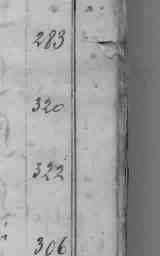 283
320
322
306